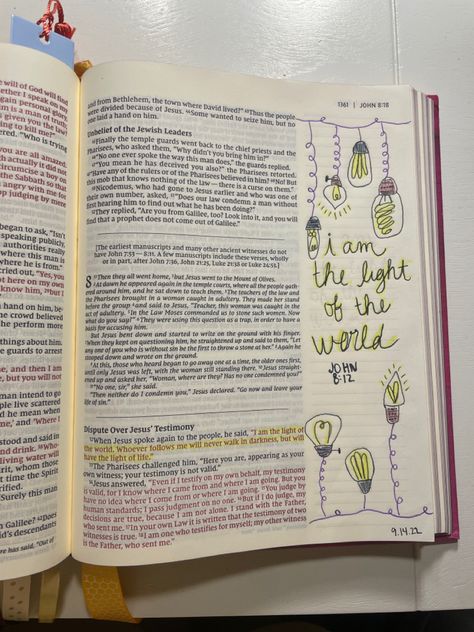 will of God will find
ether I speak on my
gain personal glory,
m is a man of truth;
given you the law?
ying to kill me?"
ered. "Who is trying
you are all amazed.
h actually it did not
circumcise a boy on
the Sabbath so that
angry with me for
op judging by mere
began to ask, "Isn't
speaking publicly,
authorities really
where this man is
where he is from."
cried out, "Yes, you
ot here on my own
know him, but I
hand on him, be
he crowd believed
he perform more
things about him.
e guards to arrest
me, and then I am
e, but you will not
man intend to go
ple live scattered
d he mean when
me,' and 'Where I
stood and said in
nd drink. Who
living water will
rit, whom those
t time the Spirit
rified.
Surely this man
Galilee? Does
id's descendants
1361 | JOHN 8:18
and from Bethlehem, the town where David lived?" 43Thus the people
were divided because of Jesus. 44Some wanted to seize him, but no
one laid a hand on him.
Unbelief of the Jewish Leaders
45Finally the temple guards went back to the chief priests and the
Pharisees, who asked them, "Why didn't you bring him in?"
46"No one ever spoke the way this man does," the guards replied.
47"You mean he has deceived you also?" the Pharisees retorted.
48"Have any of the rulers or of the Pharisees believed in him? 49No! But
this mob that knows nothing of the law — there is a curse on them."
50Nicodemus, who had gone to Jesus earlier and who was one of
their own number, asked, 51"Does our law condemn a man without
first hearing him to find out what he has been doing?"
52They replied, "Are you from Galilee, too? Look into it, and you will
find that a prophet does not come out of Galilee."
[The earliest manuscripts and many other ancient witnesses do not
have John 7:53 — 8:11. A few manuscripts include these verses, wholly
or in part, after John 7:36, John 21:25, Luke 21:38 or Luke 24:53.]
8 53Then they all went home, 1but Jesus went to the Mount of Olives.
2At dawn he appeared again in the temple courts, where all the people gath-
ered around him, and he sat down to teach them. 3The teachers of the law and
the Pharisees brought in a woman caught in adultery. They made her stand
before the group 4and said to Jesus, "Teacher, this woman was caught in the
act of adultery. 5In the Law Moses commanded us to stone such women. Now
what do you say?" 6They were using this question as a trap, in order to have a
basis for accusing him.
But Jesus bent down and started to write on the ground with his finger.
7When they kept on questioning him, he straightened up and said to them, "Let
any one of you who is without sin be the first to throw a stone at her." 8Again he
stooped down and wrote on the ground.
9At this, those who heard began to go away one at a time, the older ones first,
until only Jesus was left, with the woman still standing there. 10Jesus straight-
ened up and asked her, "Woman, where are they? Has no one condemned you?"
11"No one, sir," she said.
"Then neither do I condemn you," Jesus declared. "Go now and leave your
life of sin."
Dispute Over Jesus' Testimony
12When Jesus spoke again to the people, he said, "I am the light of
the world. Whoever follows me will never walk in darkness, but will
have the light of life."
13The Pharisees challenged him, "Here you are, appearing as your
own witness; your testimony is not valid."
14Jesus answered, "Even if I testify on my own behalf, my testimony
is valid, for I know where I came from and where I am going. But you
have no idea where I come from or where I am going. 15You judge by
human standards; I pass judgment on no one. 16But if I do judge, my
decisions are true, because I am not alone. I stand with the Father,
who sent me. 17In your own Law it is written that the testimony of two
witnesses is true. 18I am one who testifies for myself; my other witness
is the Father, who sent me."
i am
the light
of the
world
JOHN
8:12
9.14.22